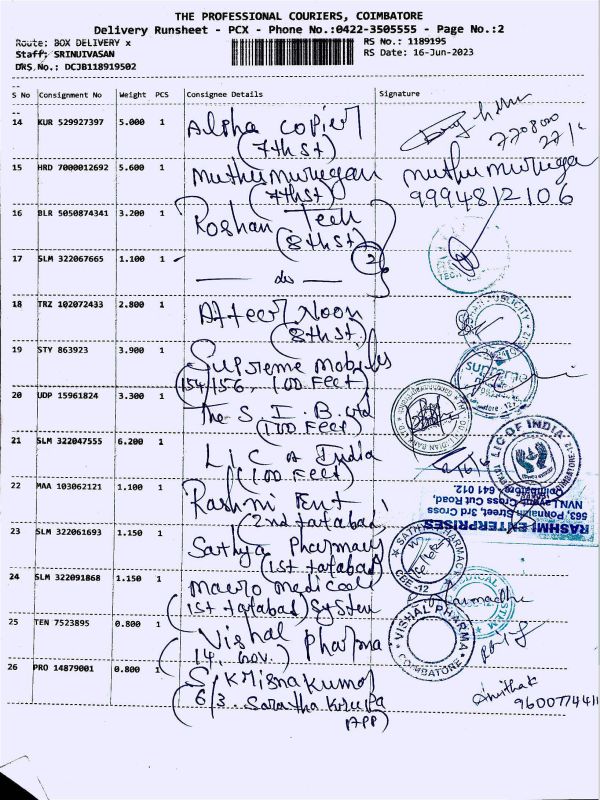 THE PROFESSIONAL COURIERS, COIMBATORE
Delivery Runsheet - PCX - Phone No.:0422-3505555 - Page No.:2
Route: BOX DELIVERY x
RS No.: 1189195
Staff: SRINIVASAN
RS Date: 16-Jun-2023
DRS.No.: DCJB118919502
S No Consignment No Weight PCS Consignee Details Signature
14 KUR 529927397 5.000 1 Alpha Copier
(7th st)
15 HRD 7000012692 5.600 1 Muthumurugan muthumuruga
(7th st) 9994812106
16 BLR 5050874341 3.200 1 Roshan Tech
(8th st)
17 SLM 322067665 1.100 1 do 2
18 TRZ 102072433 2.800 1 Atteer Noon
(8th st)
19 STY 863923 3.900 1 Supreme Mobiles
(154/156, 100 Feet)
20 UDP 15961824 3.300 1 The S. I. B. Ltd
(100 Feet)
21 SLM 322047555 6.200 1 LIC of India
(100 Feet)
LIC OF INDIA
COIMBATORE
22 MAA 103062121 1.100 1 Rashmi Ent
(2nd tatabad)
RASHMI ENTERPRISES
563, Ponnaiah Street, 3rd Cross
NVN Layout, Cross Cut Road,
Coimbatore - 641 012.
23 SLM 322061693 1.150 1 Sathya Pharmacy
(1st tatabad)
SATHYA PHARMACY
CBE-12
24 SLM 322091868 1.150 1 Macro medical
(1st tatabad) System
25 TEN 7523895 0.800 1 Vishal Pharma
(14, Gov.)
VISHAL PHARMA
COIMBATORE
26 PRO 14879001 0.800 1 S. Krishnakumar
(6/3. Saratha Krupa
APP)